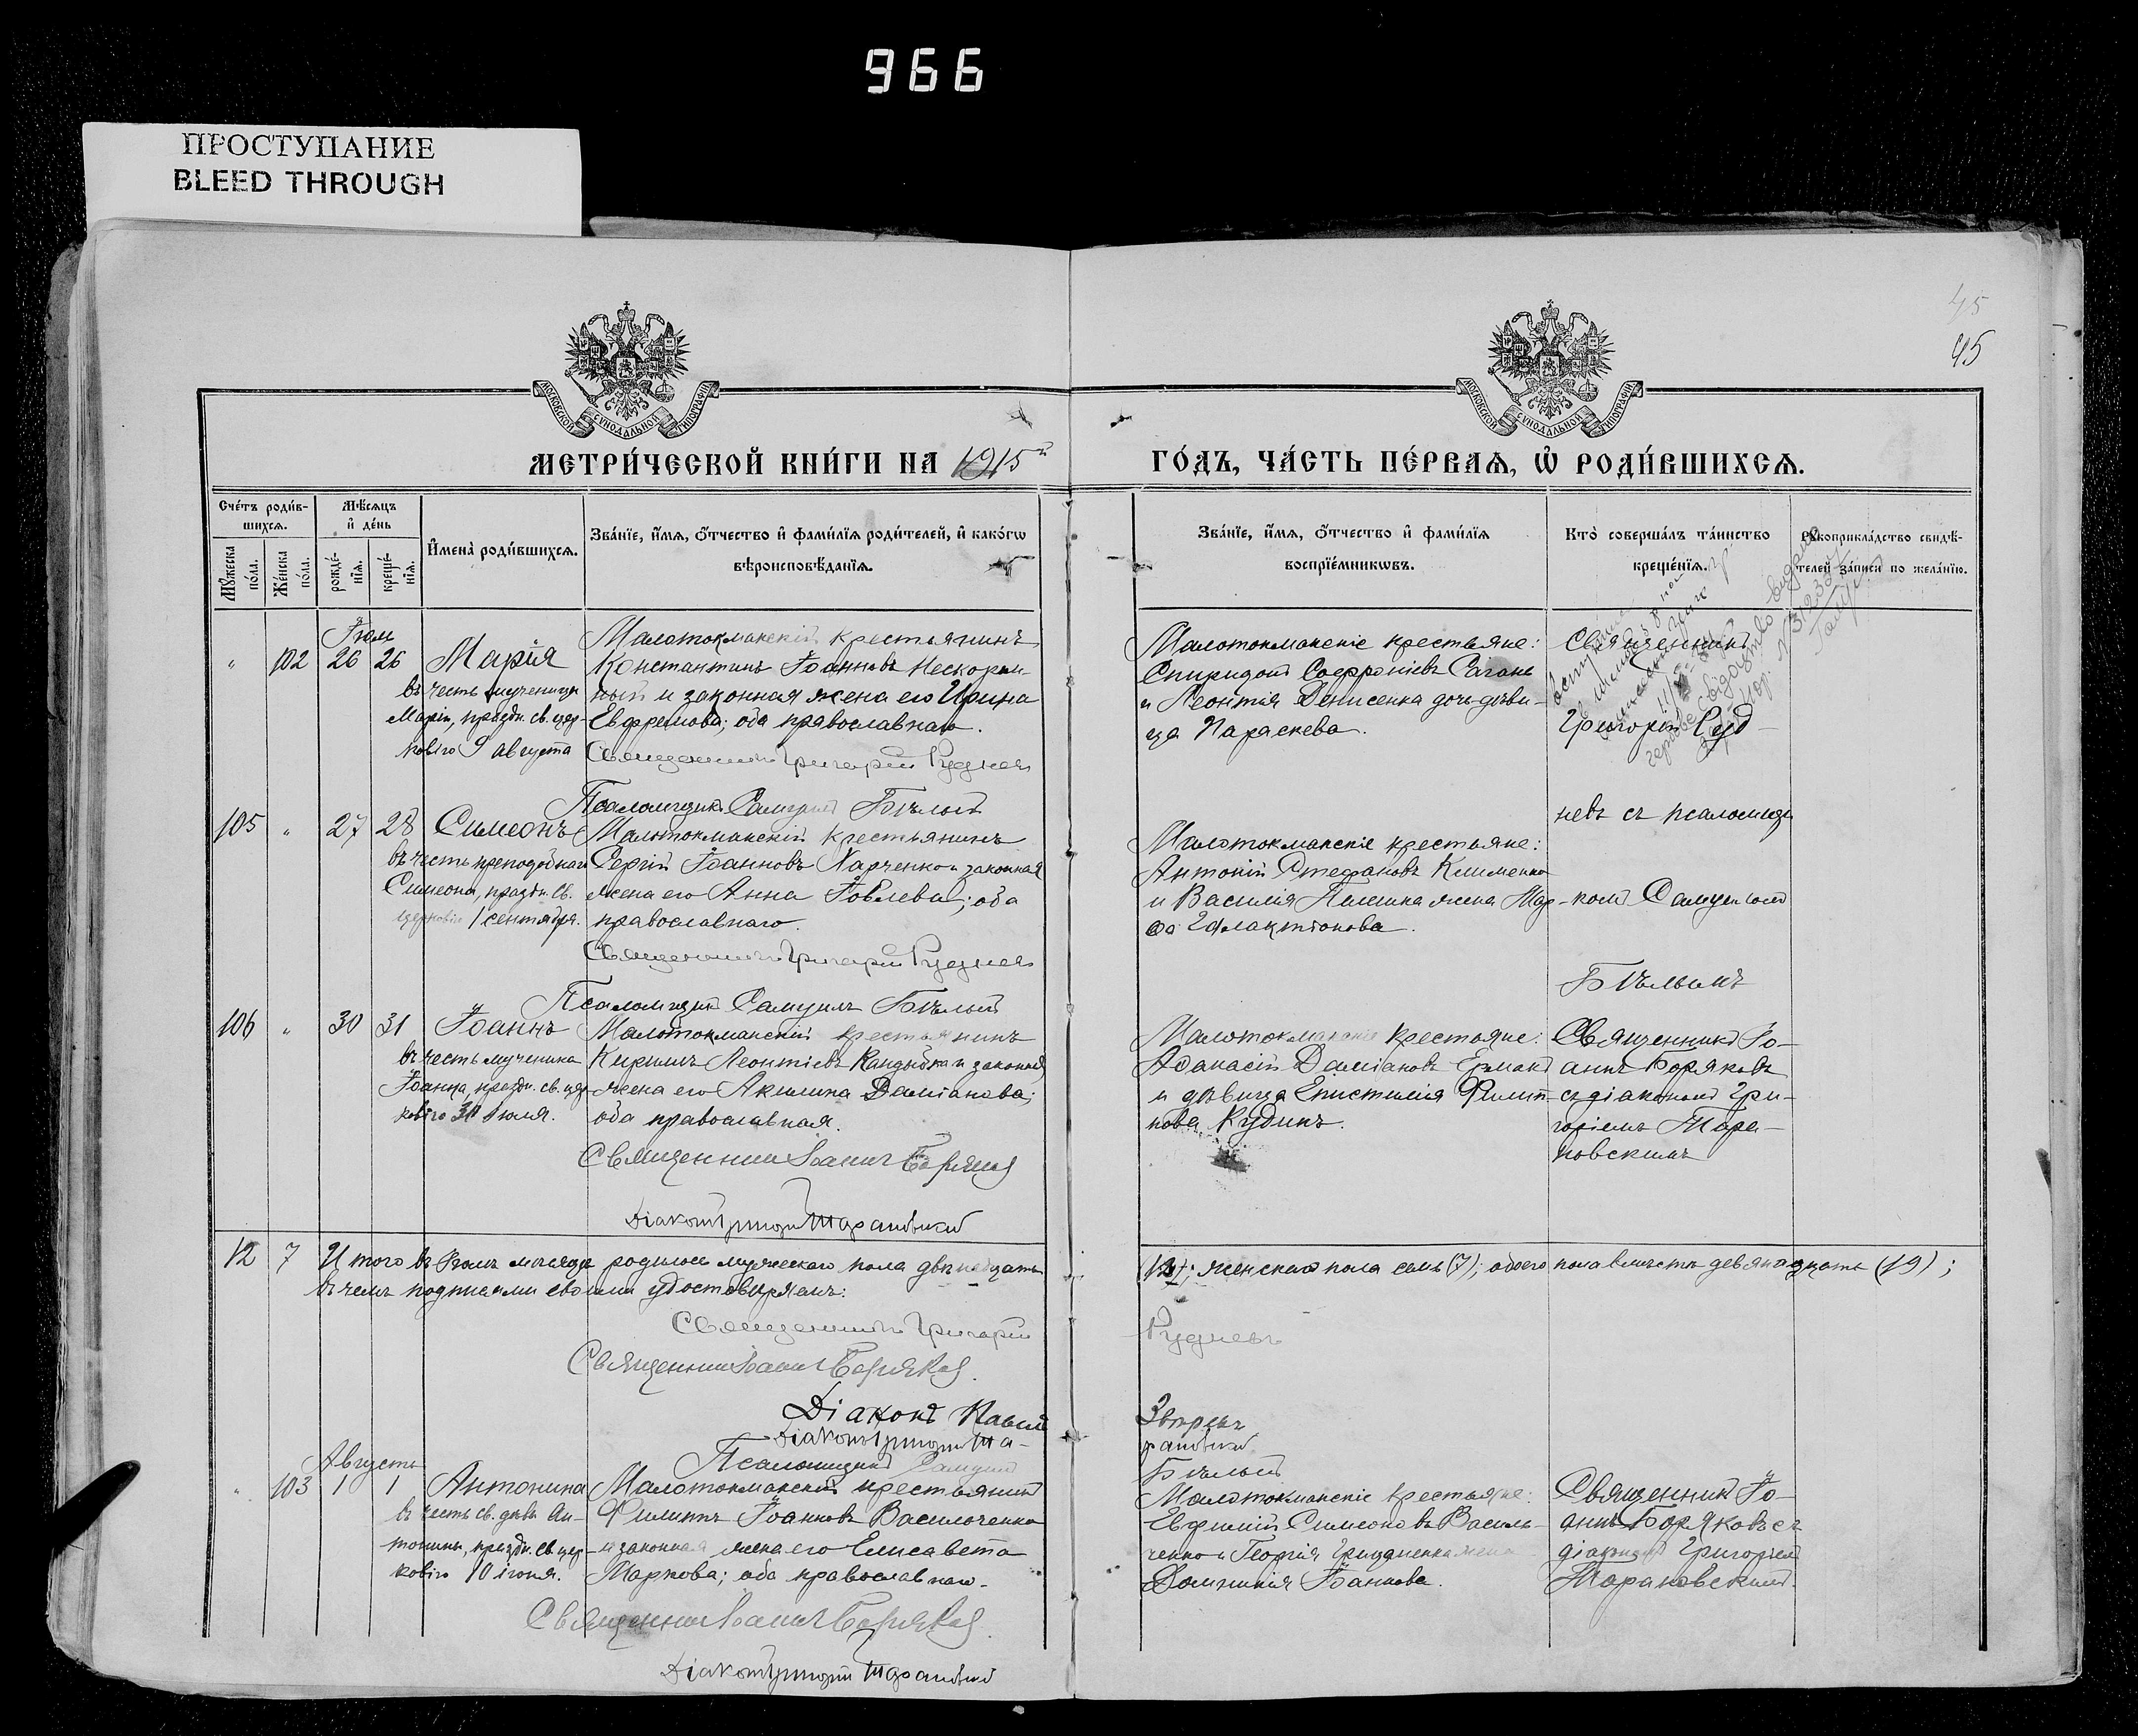 966
ПРОСТУПАНИЕ
BLEED THROUGH
45
45
МОСКОВСКОЙ СѴНОДАЛЬНОЙ ТИПОГРАФІИ
МОСКОВСКОЙ СѴНОДАЛЬНОЙ ТИПОГРАФІИ
МЕТРИ́ЧЕСКОЙ КНИ́ГИ НА 1915й
ГО́ДЪ, ЧА́СТЬ ПЕ́РВАѦ, Ѡ҆ РОДИ́ВШИХСѦ.
Сче́тъ роди́в-
шихсѧ.
Мѹ́жеска
по́ла.
Же́нска
по́ла.
Мѣ́сѧцъ
и҆ де́нь
рожде́-
нїѧ.
креще́-
нїѧ.
И҆мена̀ роди́вшихсѧ.
Зва́нїе, и҆́мѧ, ѻ҆́тчество и҆ фами́лїѧ роди́телей, и҆ како́гѡ
вѣроисповѣ́данїѧ.
Зва́нїе, и҆́мѧ, ѻ҆́тчество и҆ фами́лїѧ
воспрїе́мникѡвъ.
Кто̀ соверша́лъ та́инство
креще́нїѧ.
Рѹкоприкла́дство свидѣ́-
телей за́писи по жела́нїю.
Іюль
" 102 26 26 Марія
въ честь мученицы
Маріи, праздн. св. цер-
ковію 9 августа
Малотокмакскій крестьянинъ
Константинъ Іоанновъ Нескором-
ный и законная жена его Ирина
Евфремова; оба православнаго.
Священникъ Григорій Рудневъ
Псаломщикъ Самуилъ Бѣлый
Малотокмакскіе крестьяне:
Спиридонъ Софроніевъ Саганъ
и Леонтія Денисенка дочь дѣви-
ца Параскева.
Священникъ
Григорій Руд-
невъ съ псаломщи-
комъ Самуиломъ
Бѣлымъ
105 " 27 28 Симеонъ
въ честь преподобнаго
Симеона, праздн. св.
церковію 1 сентября.
Малотокмакскій крестьянинъ
Сергій Іоанновъ Харченко и законная
жена его Анна Іовлева; оба
православнаго.
Священникъ Григорій Рудневъ
Псаломщикъ Самуилъ Бѣлый
Малотокмакскіе крестьяне:
Антоній Стефановъ Клименко
и Василія жена Мар-
ѳа Галактіонова.
106 " 30 31 Іоаннъ
въ честь мученика
Іоанна, праздн. св. цер-
ковію 30 іюля.
Малотокмакскій крестьянинъ
Кириллъ Леонтіевъ Кандыбка и законная
жена его Акилина Даміанова;
оба православная.
Священникъ Іоаннъ Боряковъ
Діаконъ Григорій Тарановскій
Малотокмакскіе крестьяне:
Аѳанасій Даміановъ Ермакъ
и дѣвица Епистимія Филип-
пова Кудинъ.
Священникъ Іо-
аннъ Боряковъ
съ діакономъ Гри-
горіемъ Тара-
новскимъ
12 7 Итого въ Іюлѣ мѣсяцѣ родилось мужескаго пола двѣнадцать
(12); женскаго пола семь (7); обоего пола вмѣстѣ девятнадцать (19);
въ чемъ подписями своими удостовѣряемъ:
Священникъ Григорій
Рудневъ
Священникъ Іоаннъ Боряковъ.
Діаконъ Павелъ
Звѣревъ
Діаконъ Григорій Та-
рановскій
Псаломщикъ Самуилъ
Бѣлый
Августъ
" 103 1 1 Антонина
въ честь св. дѣвы Ан-
тонины, праздн. св. цер-
ковію 10 іюня.
Малотокмакскій крестьянинъ
Филиппъ Іоанновъ Васильченко
и законная жена его Елисавета
Маркова; оба православнаго.
Священникъ Іоаннъ Боряковъ.
Діаконъ Григорій Тарановскій
Малотокмакскіе крестьяне:
Евфимій Симеоновъ Василь-
ченко и Георгія Гридненка жена
Домникія Іоаннова.
Священникъ Іо-
аннъ Боряковъ съ
діакономъ Григоріемъ
Тарановскимъ.